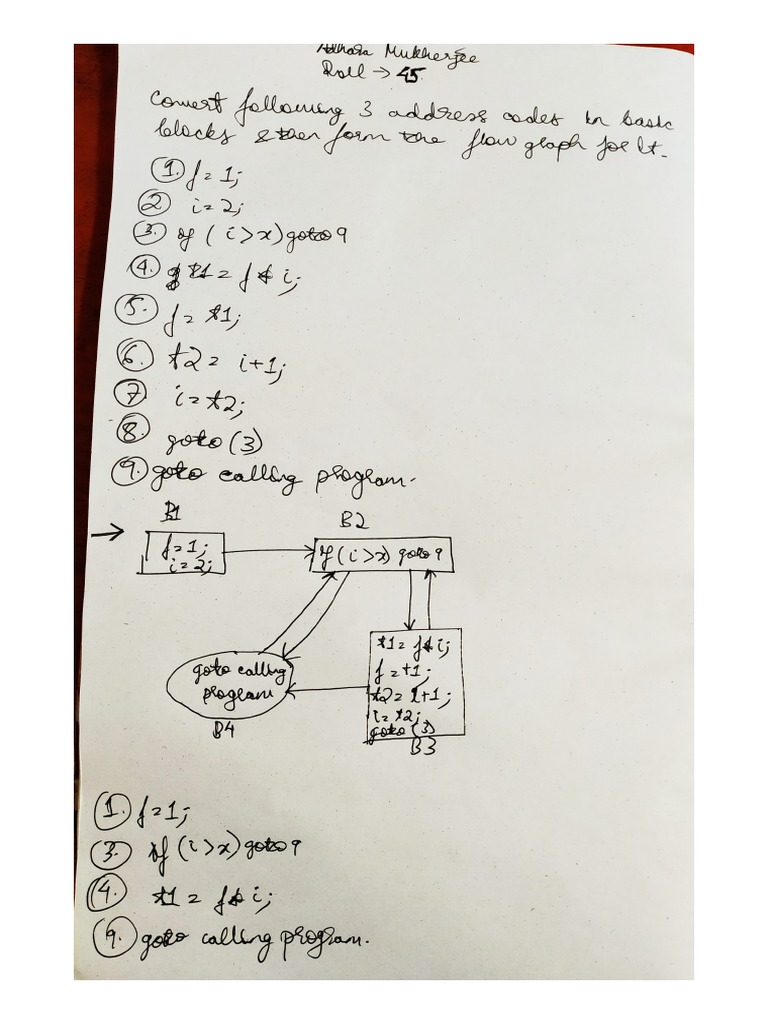 Mukherjee
Roll → 45.
Convert following 3 address codes in basic
blocks & then form the flow graph for it.
① f = 1;
② i = 2;
③. if ( i > x) goto 9
④. t1 = f * i;
⑤. f = t1;
⑥. t2 = i + 1;
⑦ i = t2;
⑧. goto (3)
⑨. goto calling program.
B1
B2
→
f = 1;
i = 2;
if ( i > x) goto 9
t1 = f * i;
f = t1;
t2 = i + 1;
i = t2;
goto (3)
B3
goto calling
program
B4
①. f = 1;
③. if ( i > x) goto 9
④. t1 = f * i;
⑨. goto calling program.